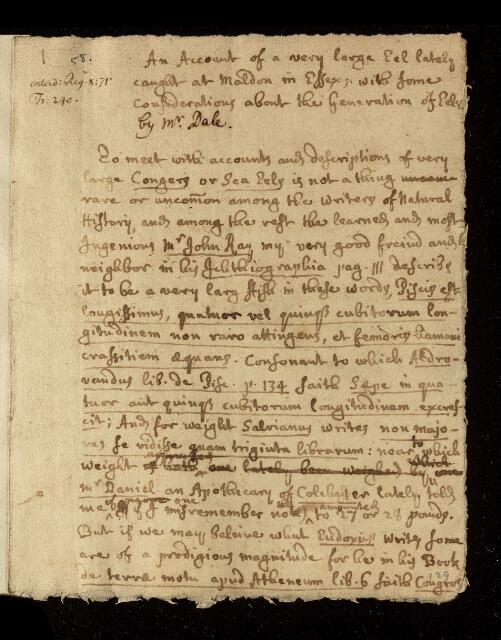 1 58.
An Account of a very large Eel lately
enterd: Reg. 8: 71.
caught at Maldon in Essex; with some
Tr: 240.
Considerations about the Generation of Eels
by Mr. Dale.
To meet with accounts and descriptions of very
large Congers or Sea Eels is not a thing
rare or uncommon among the Writers of Natural
History, and among the rest the learned and most
Ingenious Mr John Ray my very good freind and
neighbor in his Icthiographia pag. 111 describes
it to be a very larg fish in these words, Piscis est
longissimus, quatuor vel quinq cubitorum lon-
gitudinem non raro attingens, et femoris humani
crassitiem æquans. Consonant to which Aldro-
vandus lib. de Pisc. p. 134 saith Sæpe in qua-
tuor aut quinq cubitorum longitudinem excres-
cit; And for weight Salvianus writes non majo-
res se vidisse quam triginta librarum: near to which
weight one lately been weighed by
Mr Daniel an Apothecary of Colchester lately told
me if I misremember not to 27 or 28 pounds.
But if we may beleive what Eudoxus writes some
are of a prodigious magnitude for he in his Book
de terræ motu apud Atheneum lib. 6 saith Congros